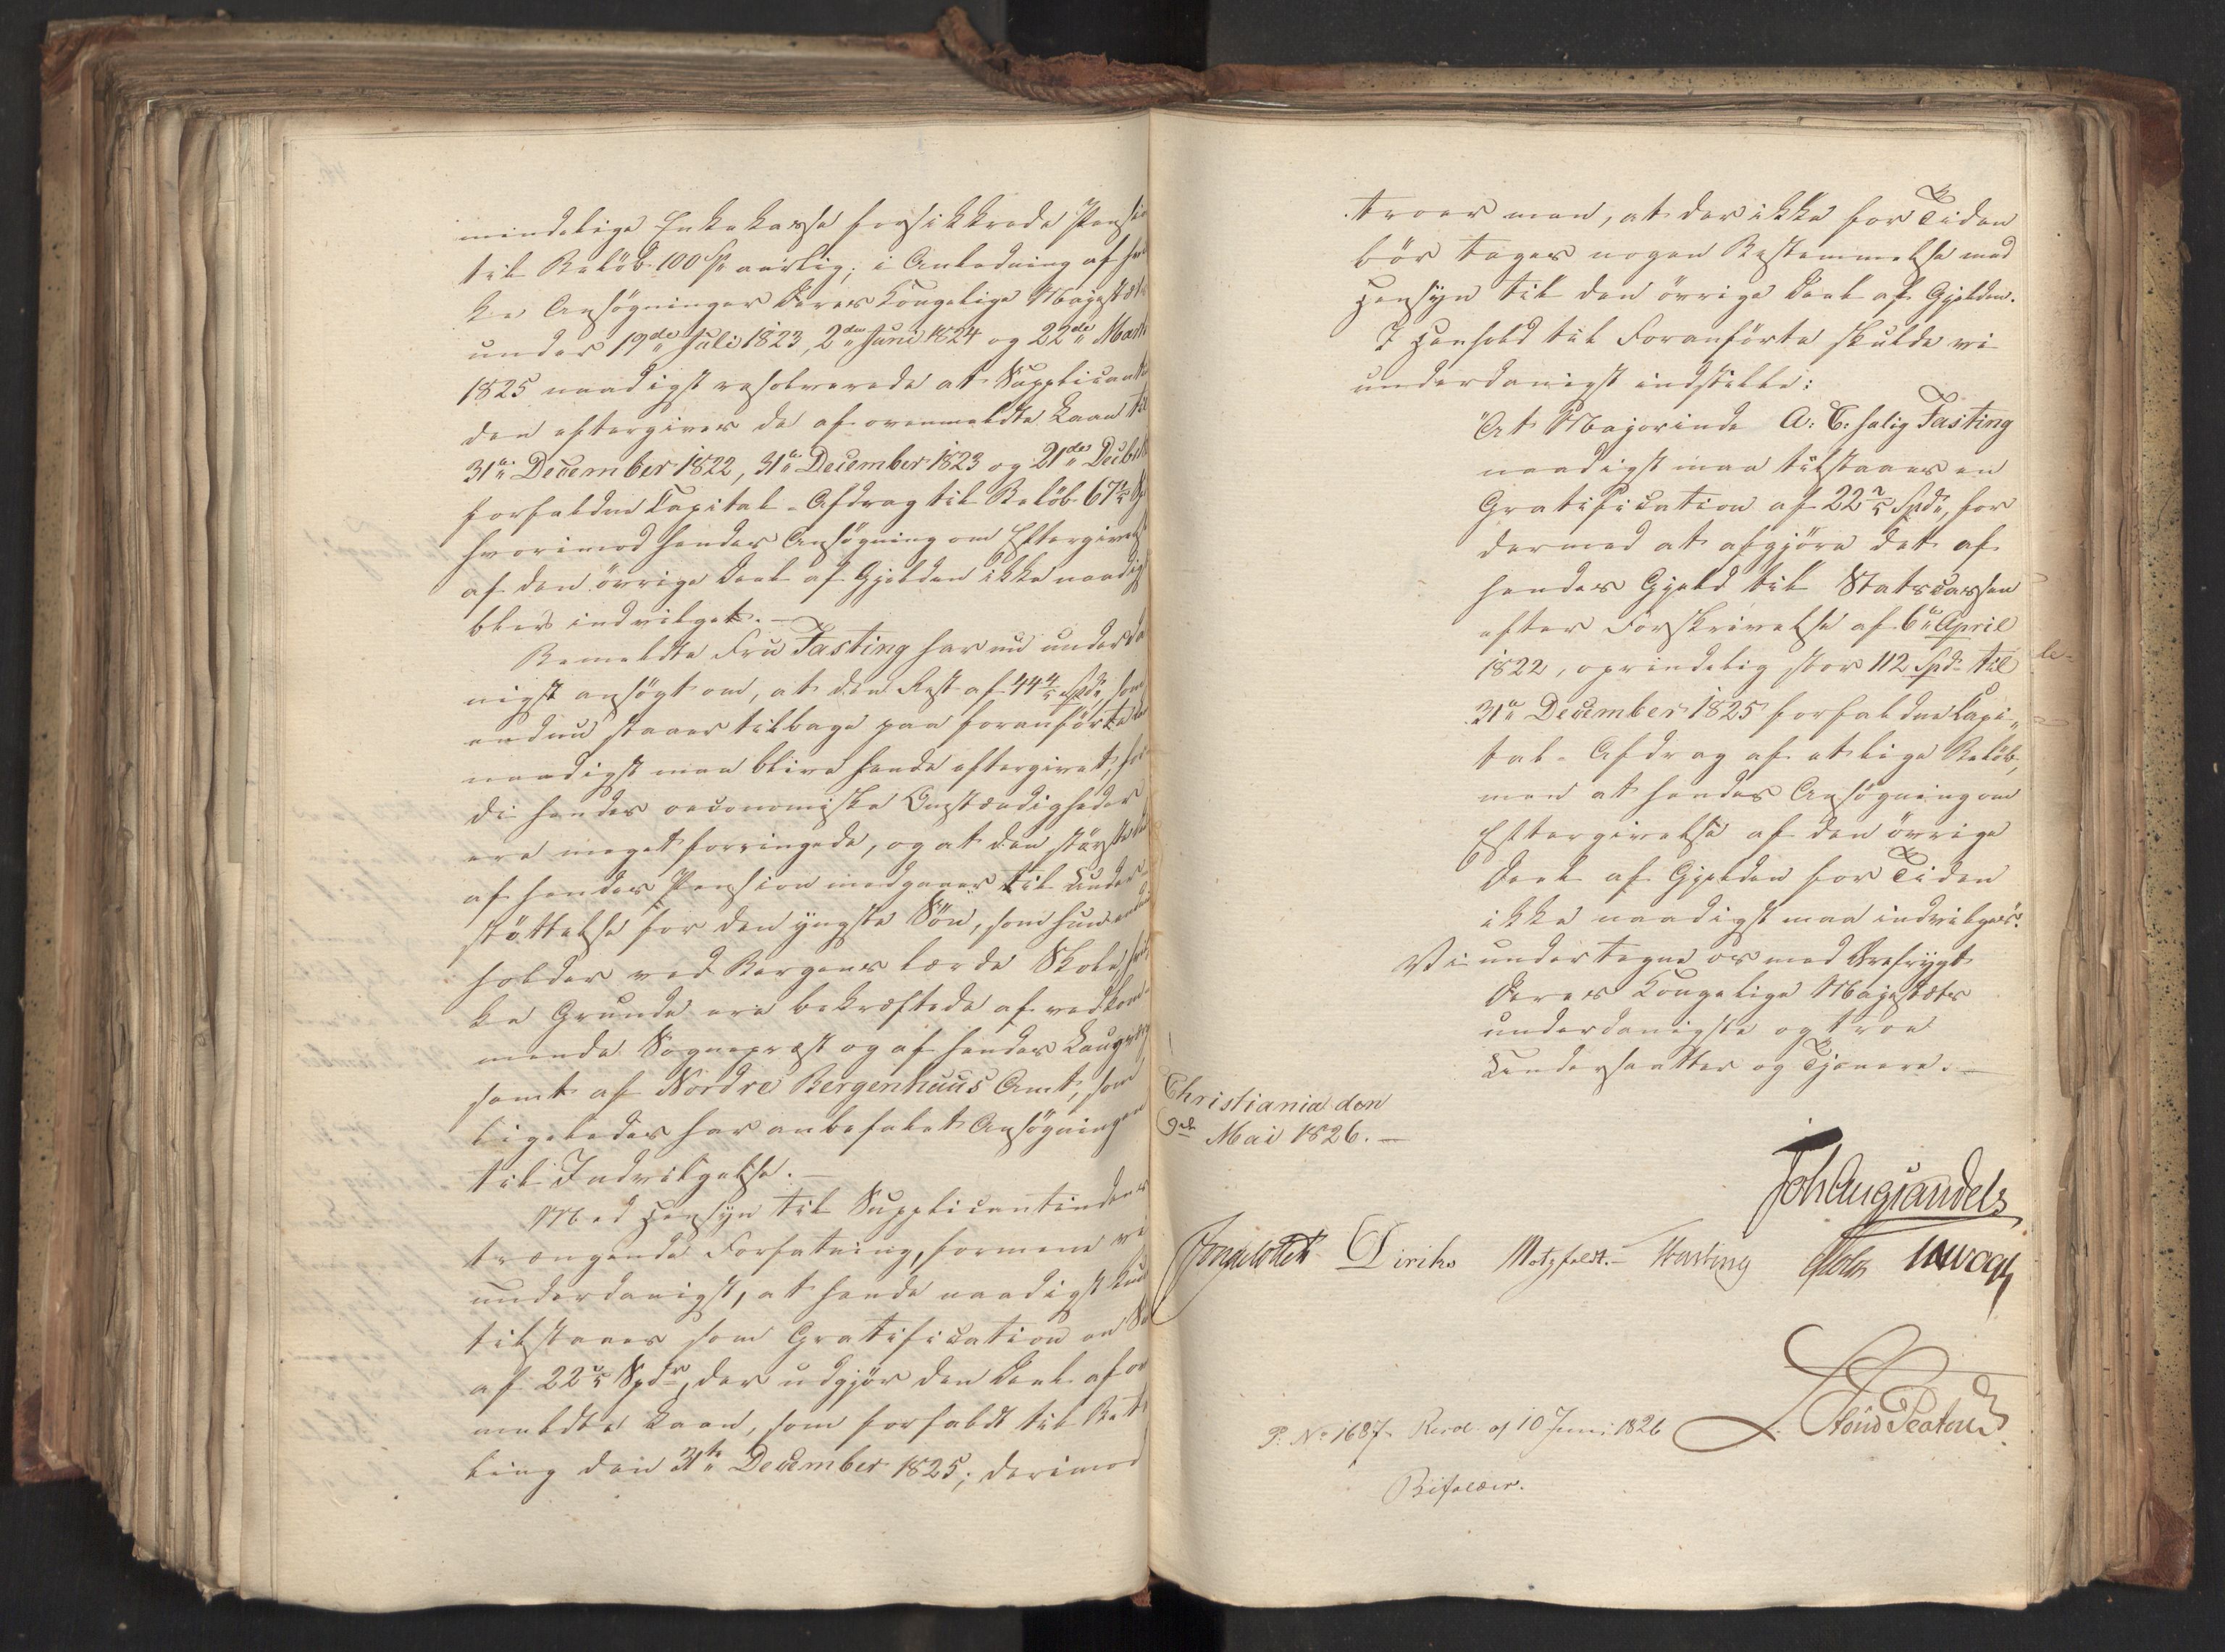 mindelige Enkekasse forsikkrede Pensio
til Beløb 100 Sp aarlig; i Anledning af hvil
ke Ansøgninger Deres Kongelige Majestæt
under 19de Juli 1823, 2den Juni 1824 og 22de Marts
1825 naadigst resolverede at Supplicantin
den eftergives de af ovenmeldte Laan til
31te December 1822, 31te December 1823 og 21de Decbr
forfaldne Capital-Afdrag til Beløb 67 1/5 Sp
hvorimod hendes Ansøgning om Eftergivelse
af den øvrige Deel af Gjelden ikke naadigst
blev indvilget.—
Bemeldte Frue Fasting har nu underda
nigst ansøgt om, at den Rest af 44 4/5 Spd, som
endnu staaer tilbage paa foranførte
naadigst maa blive hende eftergivet, for
di hendes oeconomiske Omstændigheder
ere meget forringede, og at den største Deel
af hendes Pension medgaaer til Under
støttelse for den yngste Søn, som hun under
holder ved Bergens lærde Skole, hvil
ke Grunde ere bekræftede af vedkom-
mende Sognepræst og af hendes Laugværge
samt af Nordre Bergenhuus Amt, som
ligeledes har anbefalet Ansøgningen
til Indvilgelse.—
Med Hensyn til Supplicantindens
trængende Forfatning, formene vi
underdanigst, at hende naadigst kun
tilstaaes som Gratification en Su
af 22 2/5 Spdr, der udgjør den Deel af ov
meldte Laan, som forfaldt til Beta
ling den 31te December 1825; derimod
troer man, at der ikke for Tiden
bør tages nogen Bestemmelse med
Hensyn til den øvrige Deel af Gjelden.
I Henhold til Foranførte skulde vi
underdanigst indstille:
"At Majorinde A: C: salig Fasting
naadigst maa tilstaaes en
Gratification af 22 2/5 Spd, for
dermed at afgjøre det af
hendes Gjeld til Statscassen
efter Forskrivelse af 6te April
1822, oprindelig stor 112 Spd til
31te December 1825 forfaldne Capi-
tal-Afdrag af et lige Beløb,
men at hendes Ansøgning om
Eftergivelse af den øvrige
Deel af Gjelden for Tiden
ikke naadigst maa indvilges."
Vi undertegne os med Ærefrygt
Deres Kongelige Majestæts
underdanigste og troe
Undersaatter og Tjenere.—
Christiania den
9de Mai 1826.—
Joh Aug Sandels
Diriks Motzfeldt.— Fasting
P: No 1687. Resol. af 10 Juni 1826
Bifaldes.